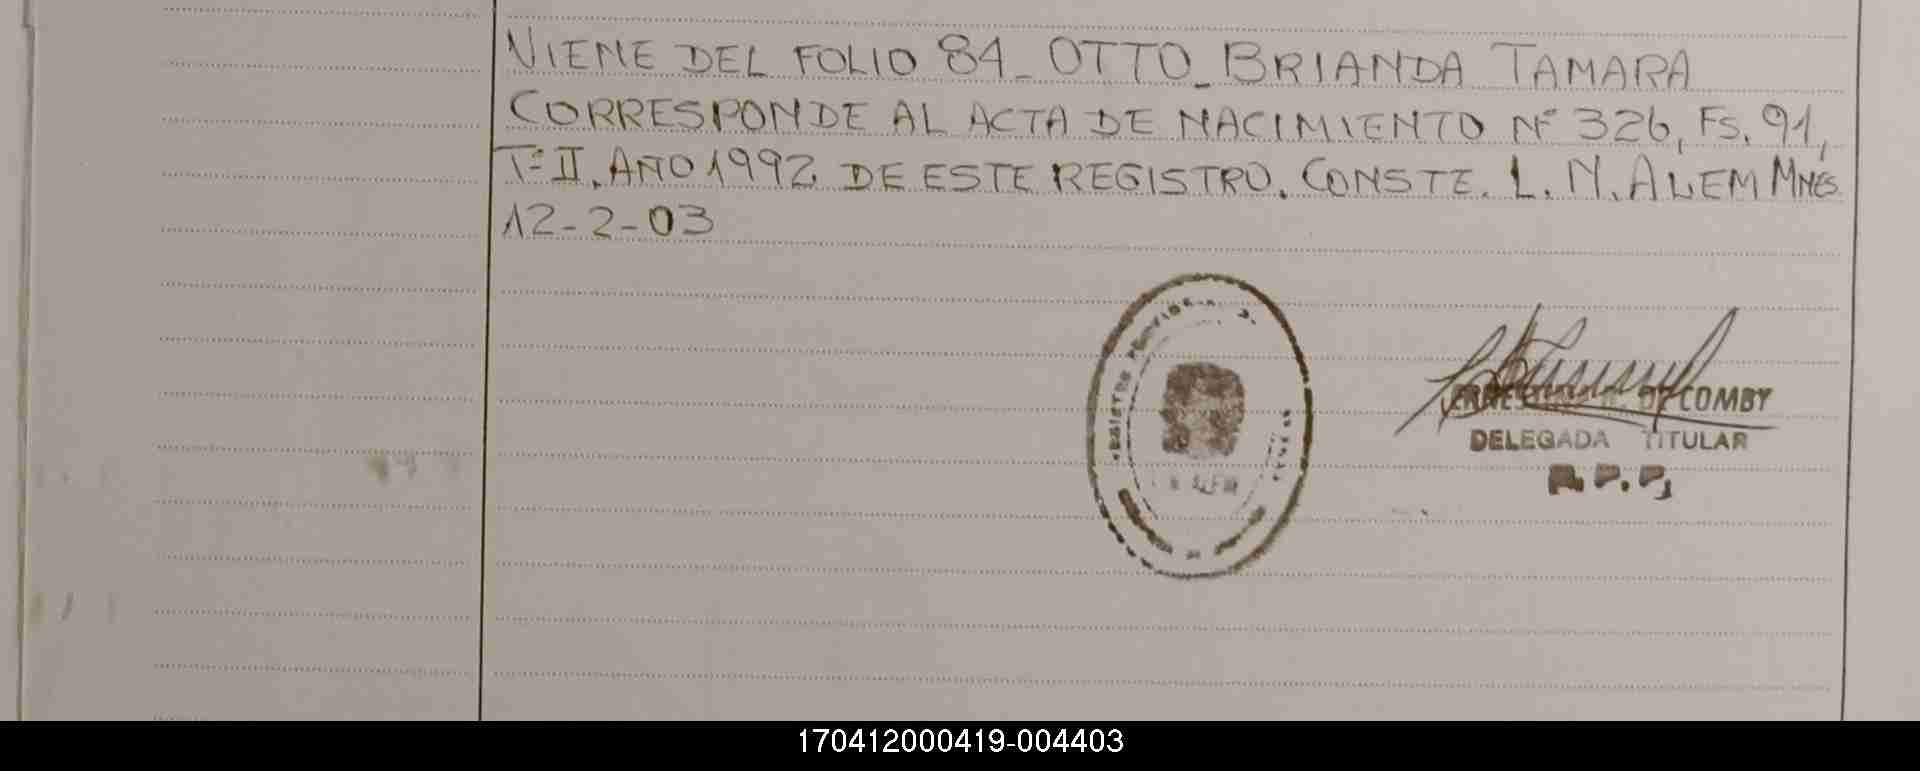 VIENE DEL FOLIO 84_ OTTO_ BRIANDA TAMARA
CORRESPONDE AL ACTA DE NACIMIENTO Nº 326, FS. 91,
Tº II. AÑO 1992 DE ESTE REGISTRO. CONSTE. L. N. ALEM MNES
12-2-03
REGISTRO
DE COMBY
DELEGADA TITULAR
R.P.P.
170412000419-004403